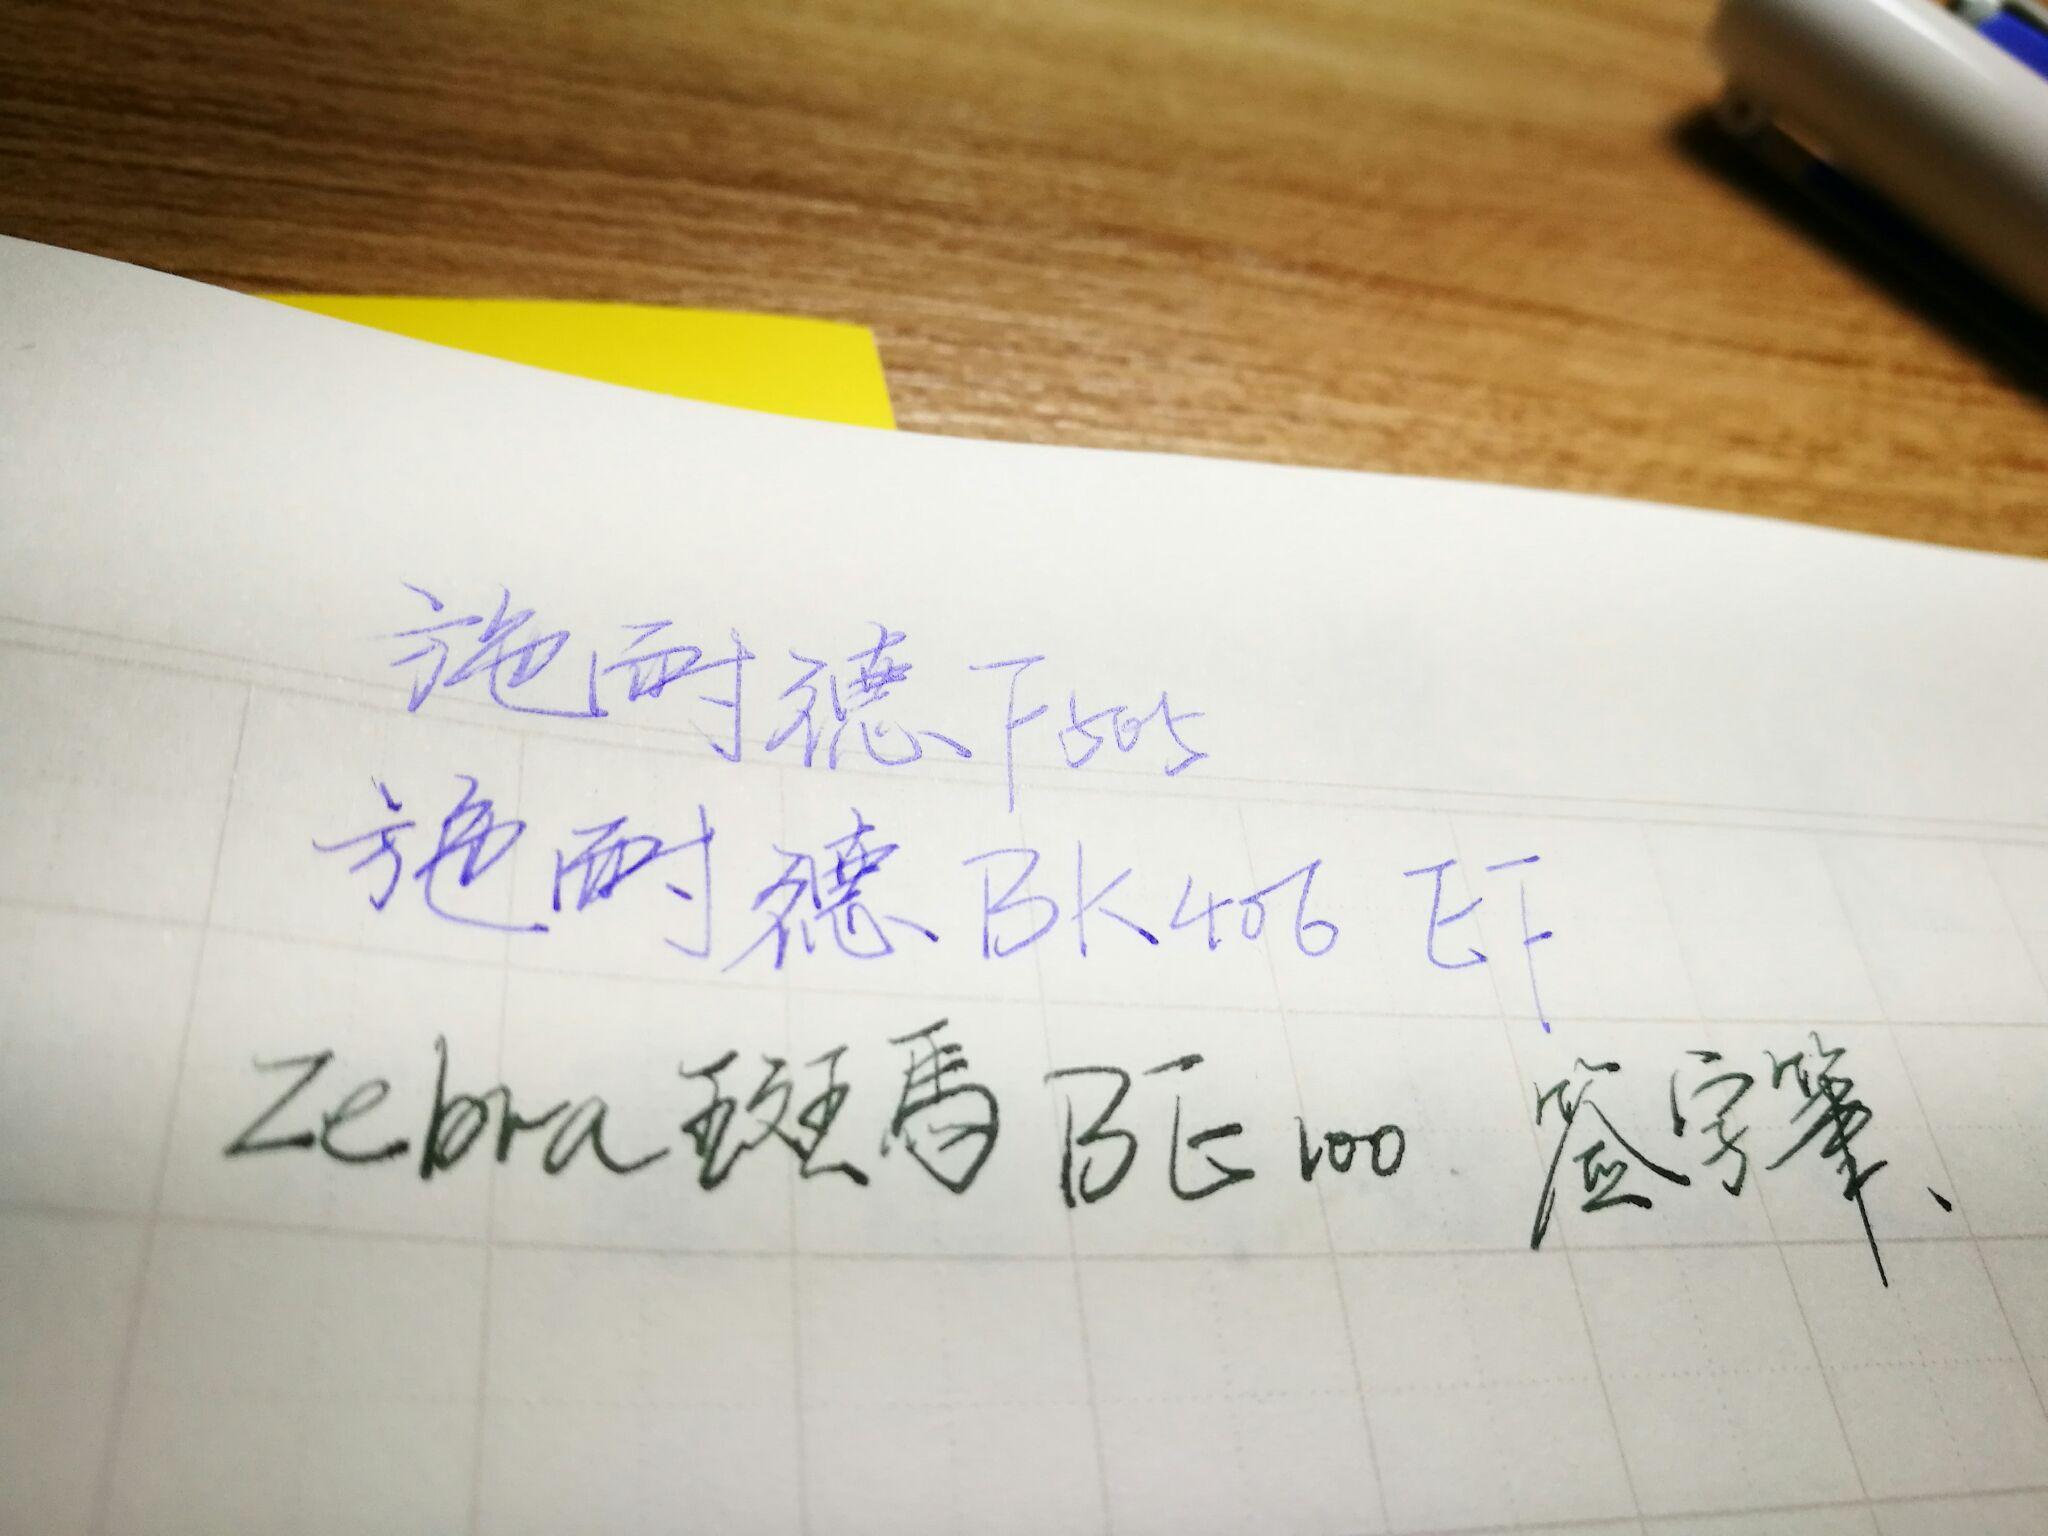 施耐德F505
施耐德BK406 EF
Zebra斑馬BE100 签字筆、